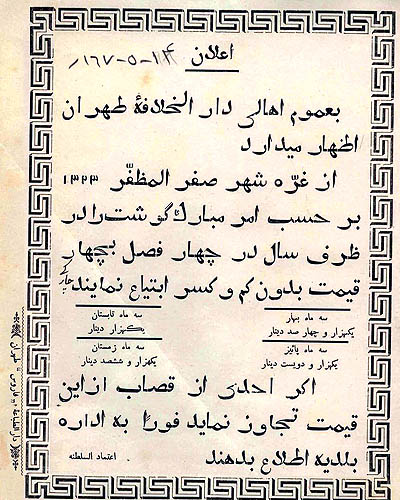 اعلان
۱۶۷-۵-۱۴
بعموم اهالی دار الخلافهٔ طهران
اظهار میدارد
از غرّه شهر صفر المظفّر ۱۳۲۳
بر حسب امر مبارك گوشت را در
ظرف سال در چهار فصل بچهار
قیمت بدون کم و کسر ابتیاع نمایند
سه ماه بهار
یکهزار و چهار صد دینار
سه ماه تابستان
یکهزار دینار
سه ماه پائیز
یکهزار و دویست دینار
سه ماه زمستان
یکهزار و ششصد دینار
اکر احدی از قصاب ازاین
قیمت تجاوز نماید فوراً به اداره
بلدیه اطلاع بدهند
اعتماد السلطنه